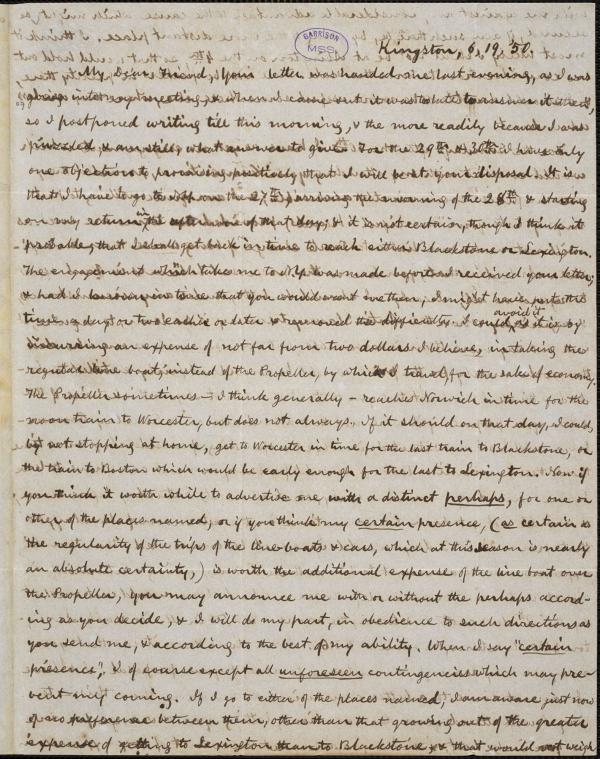 GARRISON
MSS.
Kingston, 6, 19, 50.
My Dear Friend, Your letter was handed me last evening, as I was
going into my meeting, & when I came out it was too late to answer it then,
so I postponed writing till this morning, & the more readily because I was
puzzled, & am still, what answer to give. For the 29th & 30th I have only
one objection to promising positively that I will be at your disposal. It is
that I have to go to on the 27th, arriving the morning of the 28th & starting
on my return in the afternoon of that day; & it is not certain, though I think it
probable, that I shall get back in time to reach either Blackstone or Lexington.
The engagement which takes me to was made before I received your letter;
& had I known in time that you would want me then, I might have put the
time a day or two earlier or later & removed the difficulty. I could avoid it, as it is, by
incurring an expense of not far from two dollars I believe, in taking the
regular line boat, instead of the Propeller, by which I travel, for the sake of economy.
The Propeller sometimes — I think generally — reaches Norwich in time for the
noon train to Worcester, but does not always. If it should on that day, I could,
by not stopping at home, get to Worcester in time for the last train to Blackstone, or
the train to Boston which would be early enough for the last to Lexington. Now if
you think it worth while to advertise me with a distinct perhaps, for one or
other of the places named, or if you think my certain presence, (as certain as
the regularity of the trips of the line boats & cars, which at this season is nearly
an absolute certainty,) is worth the additional expense of the line boat over
the Propeller, you may announce me with or without the perhaps accord-
ing as you decide, & I will do my part, in obedience to such directions as
you send me, & according to the best of my ability. When I say "certain
presence", I of course except all unforeseen contingencies which may pre-
vent my coming. If I go to either of the places named, I am aware just now
of no preference between them, other than that growing out of the greater
expense of getting to Lexington than to Blackstone, & that would not weigh